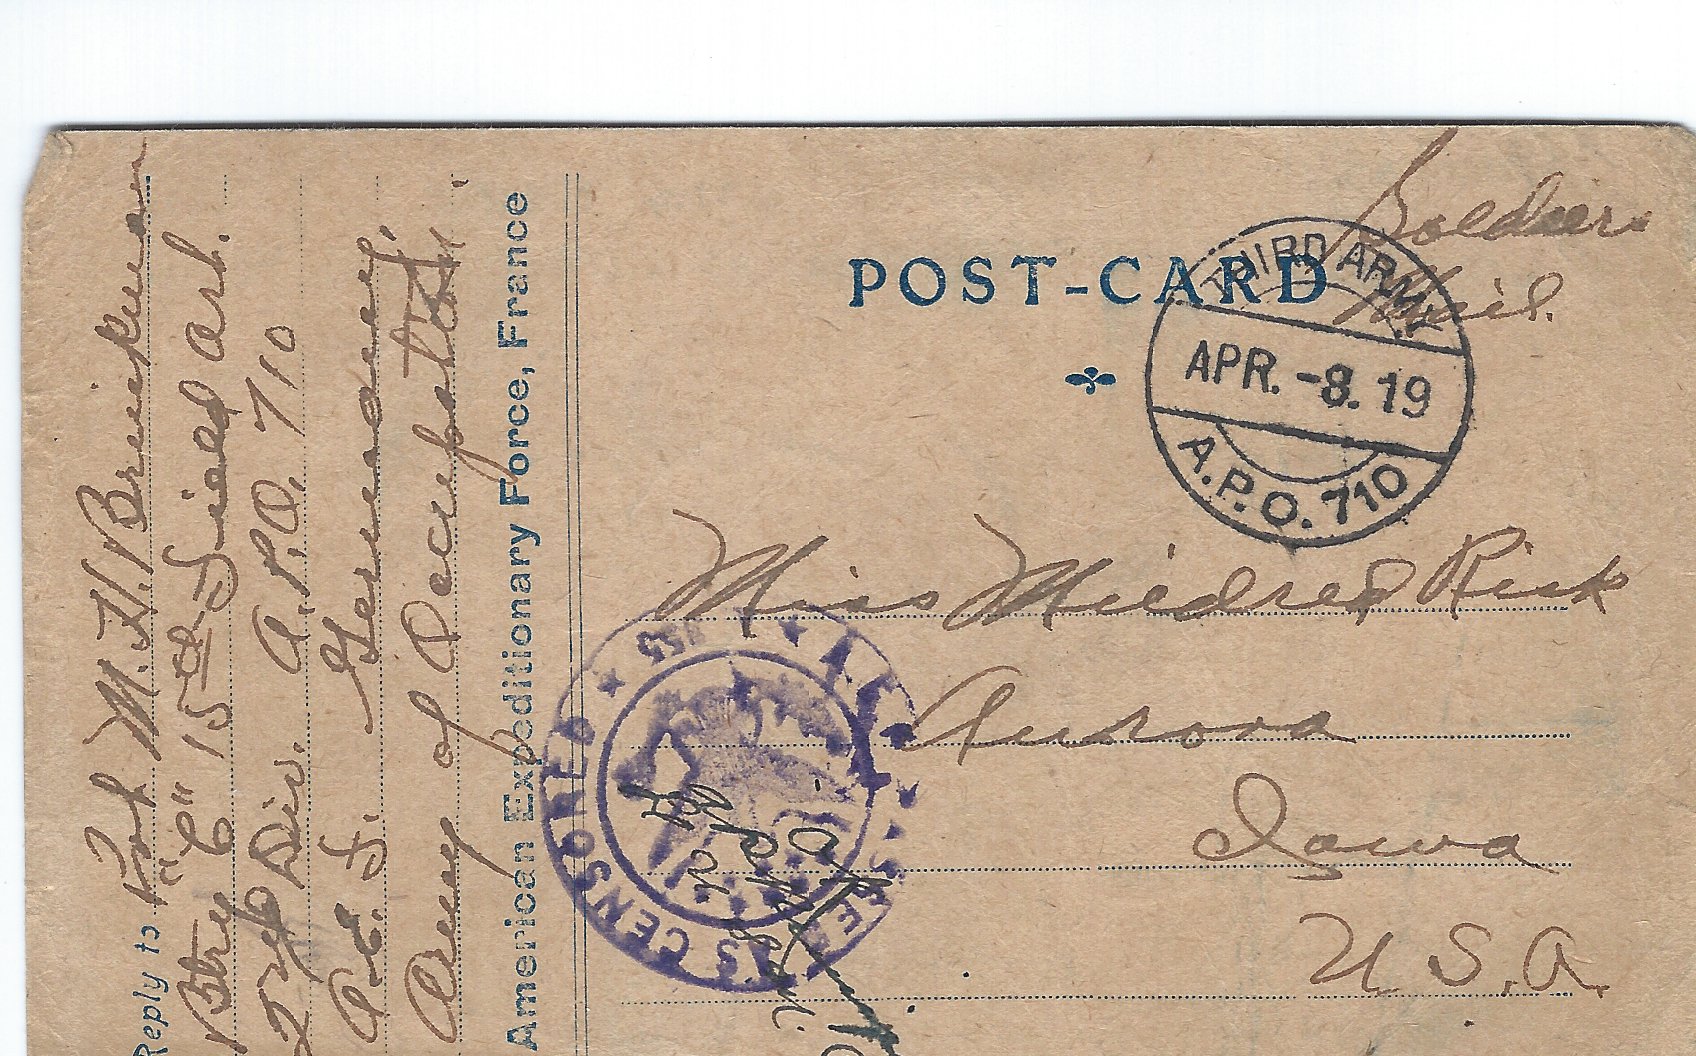 Soldiers
Mail.
POST-CARD
THIRD ARMY
APR. -8. 19
A.P.O. 710
Miss Mildred Risk
Aurora
Iowa
U.S.A.
Reply to
M. H. Brinkman
Btry "C" 15th Field Art.
2nd Div. A.P.O. 710
A.E.F. Germany.
Army of Occupation
American Expeditionary Force, France
CENSORED